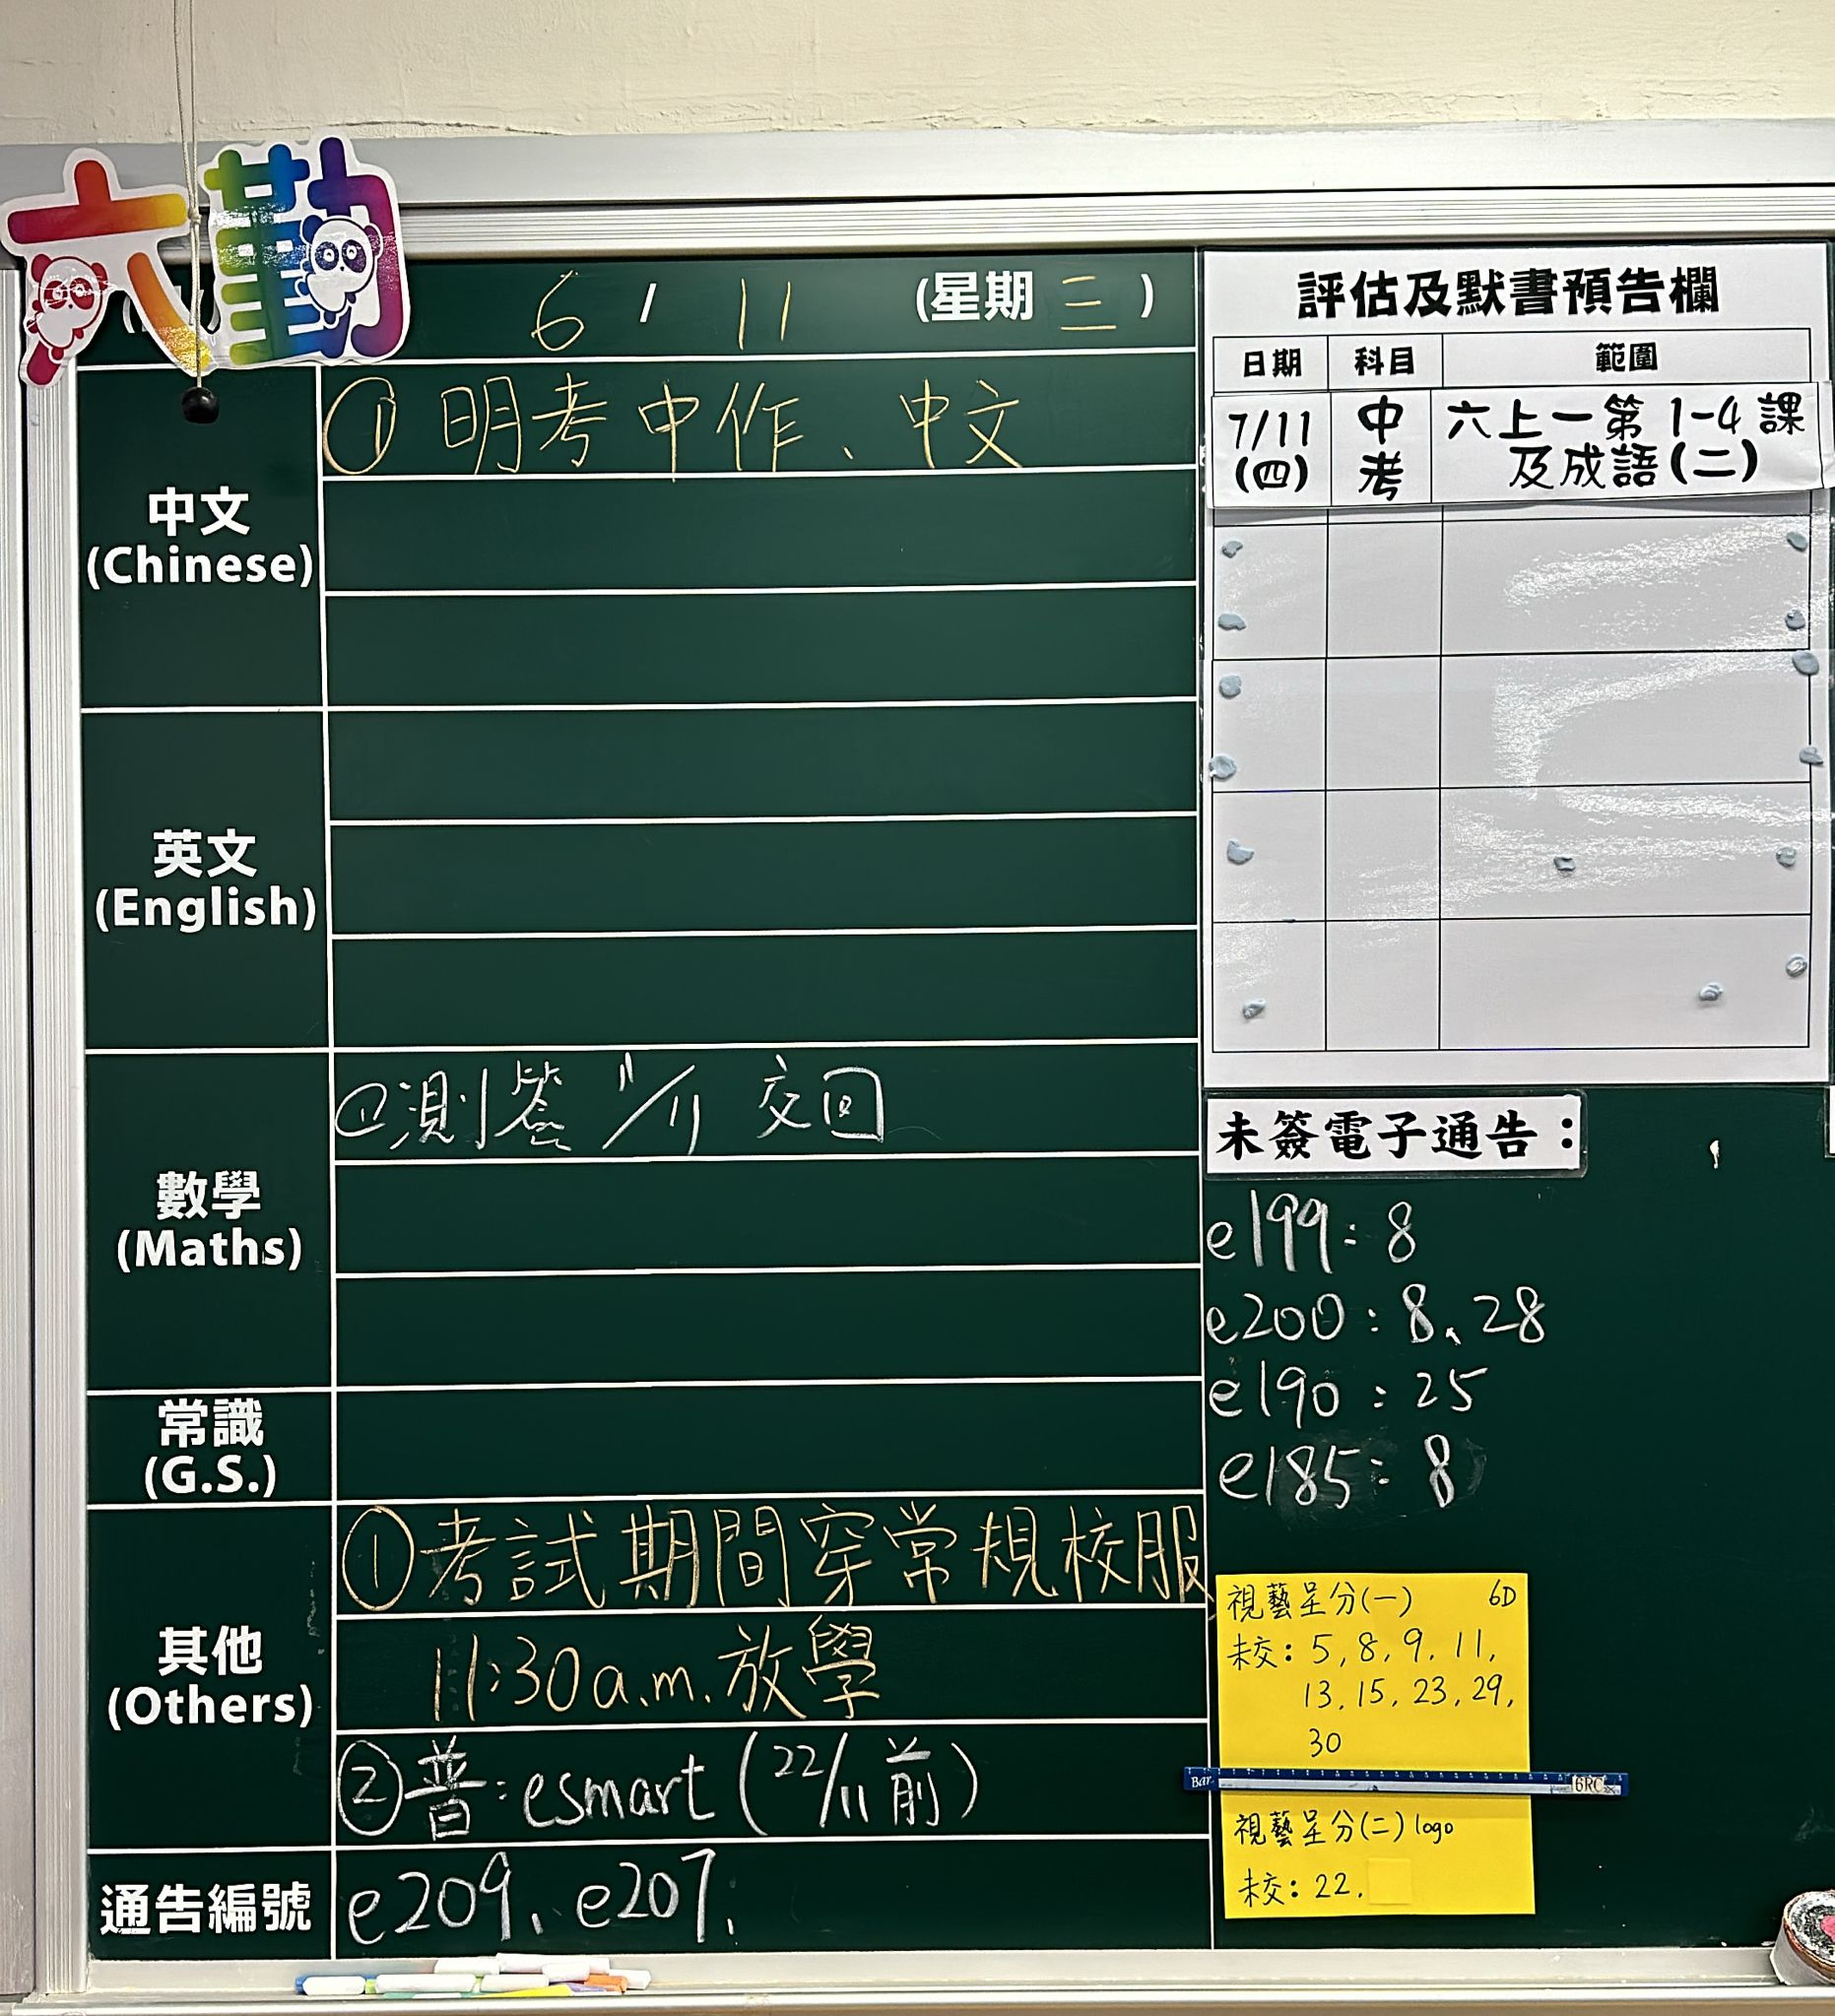 六勤
6 / 11 (星期三)
中文
(Chinese)
① 明考中作、中文
英文
(English)
數學
(Maths)
① 測簽 11/11 交回
常識
(G.S.)
其他
(Others)
① 考試期間穿常規校服
11:30a.m.放學
② 普:esmart (22/11前)
通告編號
e209、e207、
評估及默書預告欄
日期 科目 範圍
7/11 中 六上一第1-4課
(四) 考 及成語(二)
未簽電子通告：
e199:8
e200:8、28
e190:25
e185:8
視藝呈分(一) 6D
未交: 5, 8, 9, 11,
13, 15, 23, 29,
30
6RC
視藝呈分(二) logo
未交: 22.